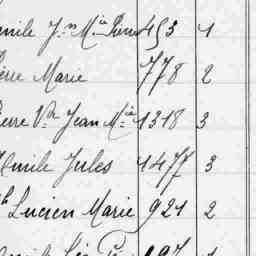 mile Jn Mie Pierre 453 1
Marie 778 2
Pierre Vor Jean Mie 1318 3
Emile Jules 1477 3
Lucien Marie 921 2